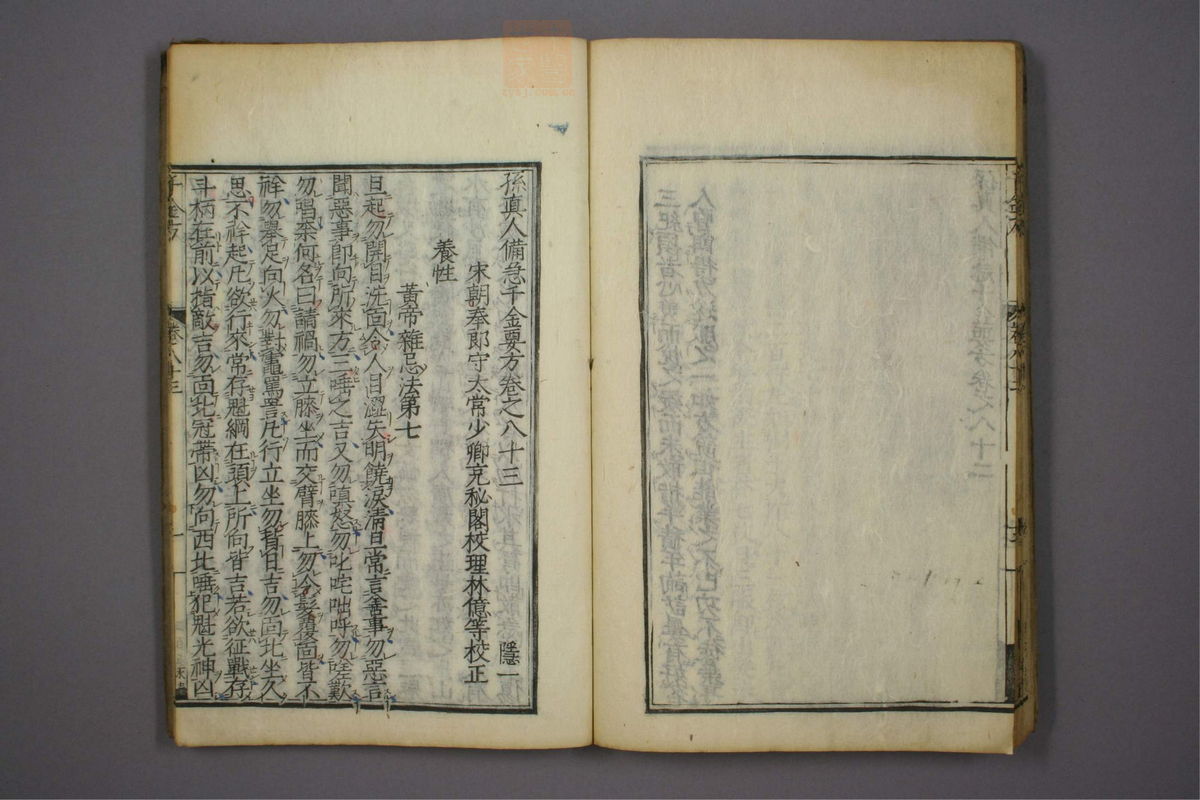 孫真人備急千金要方卷之八十三 隱一
宋朝奉郎守太常少卿充秘閣校理林億等校正
養性
黃帝雜忌法第七
旦起勿開目洗面令人目澀失明饒淚清旦常言善事勿惡言
聞惡事即向所來方三唾之吉又勿嗔怒勿叱咤咄呼勿嗟歎
勿唱奈何名曰請禍勿立膝坐而交臂膝上勿令髮覆面皆不
祥勿舉足向火勿對竈罵詈凡行立坐勿背日吉勿面北坐久
思不祥起凡欲行來常存魁綱在頭上所向皆吉若欲征戰存
斗柄在前以指敵吉勿面北冠帶凶勿向西北唾犯魁光神凶
千金方
卷八十三
一